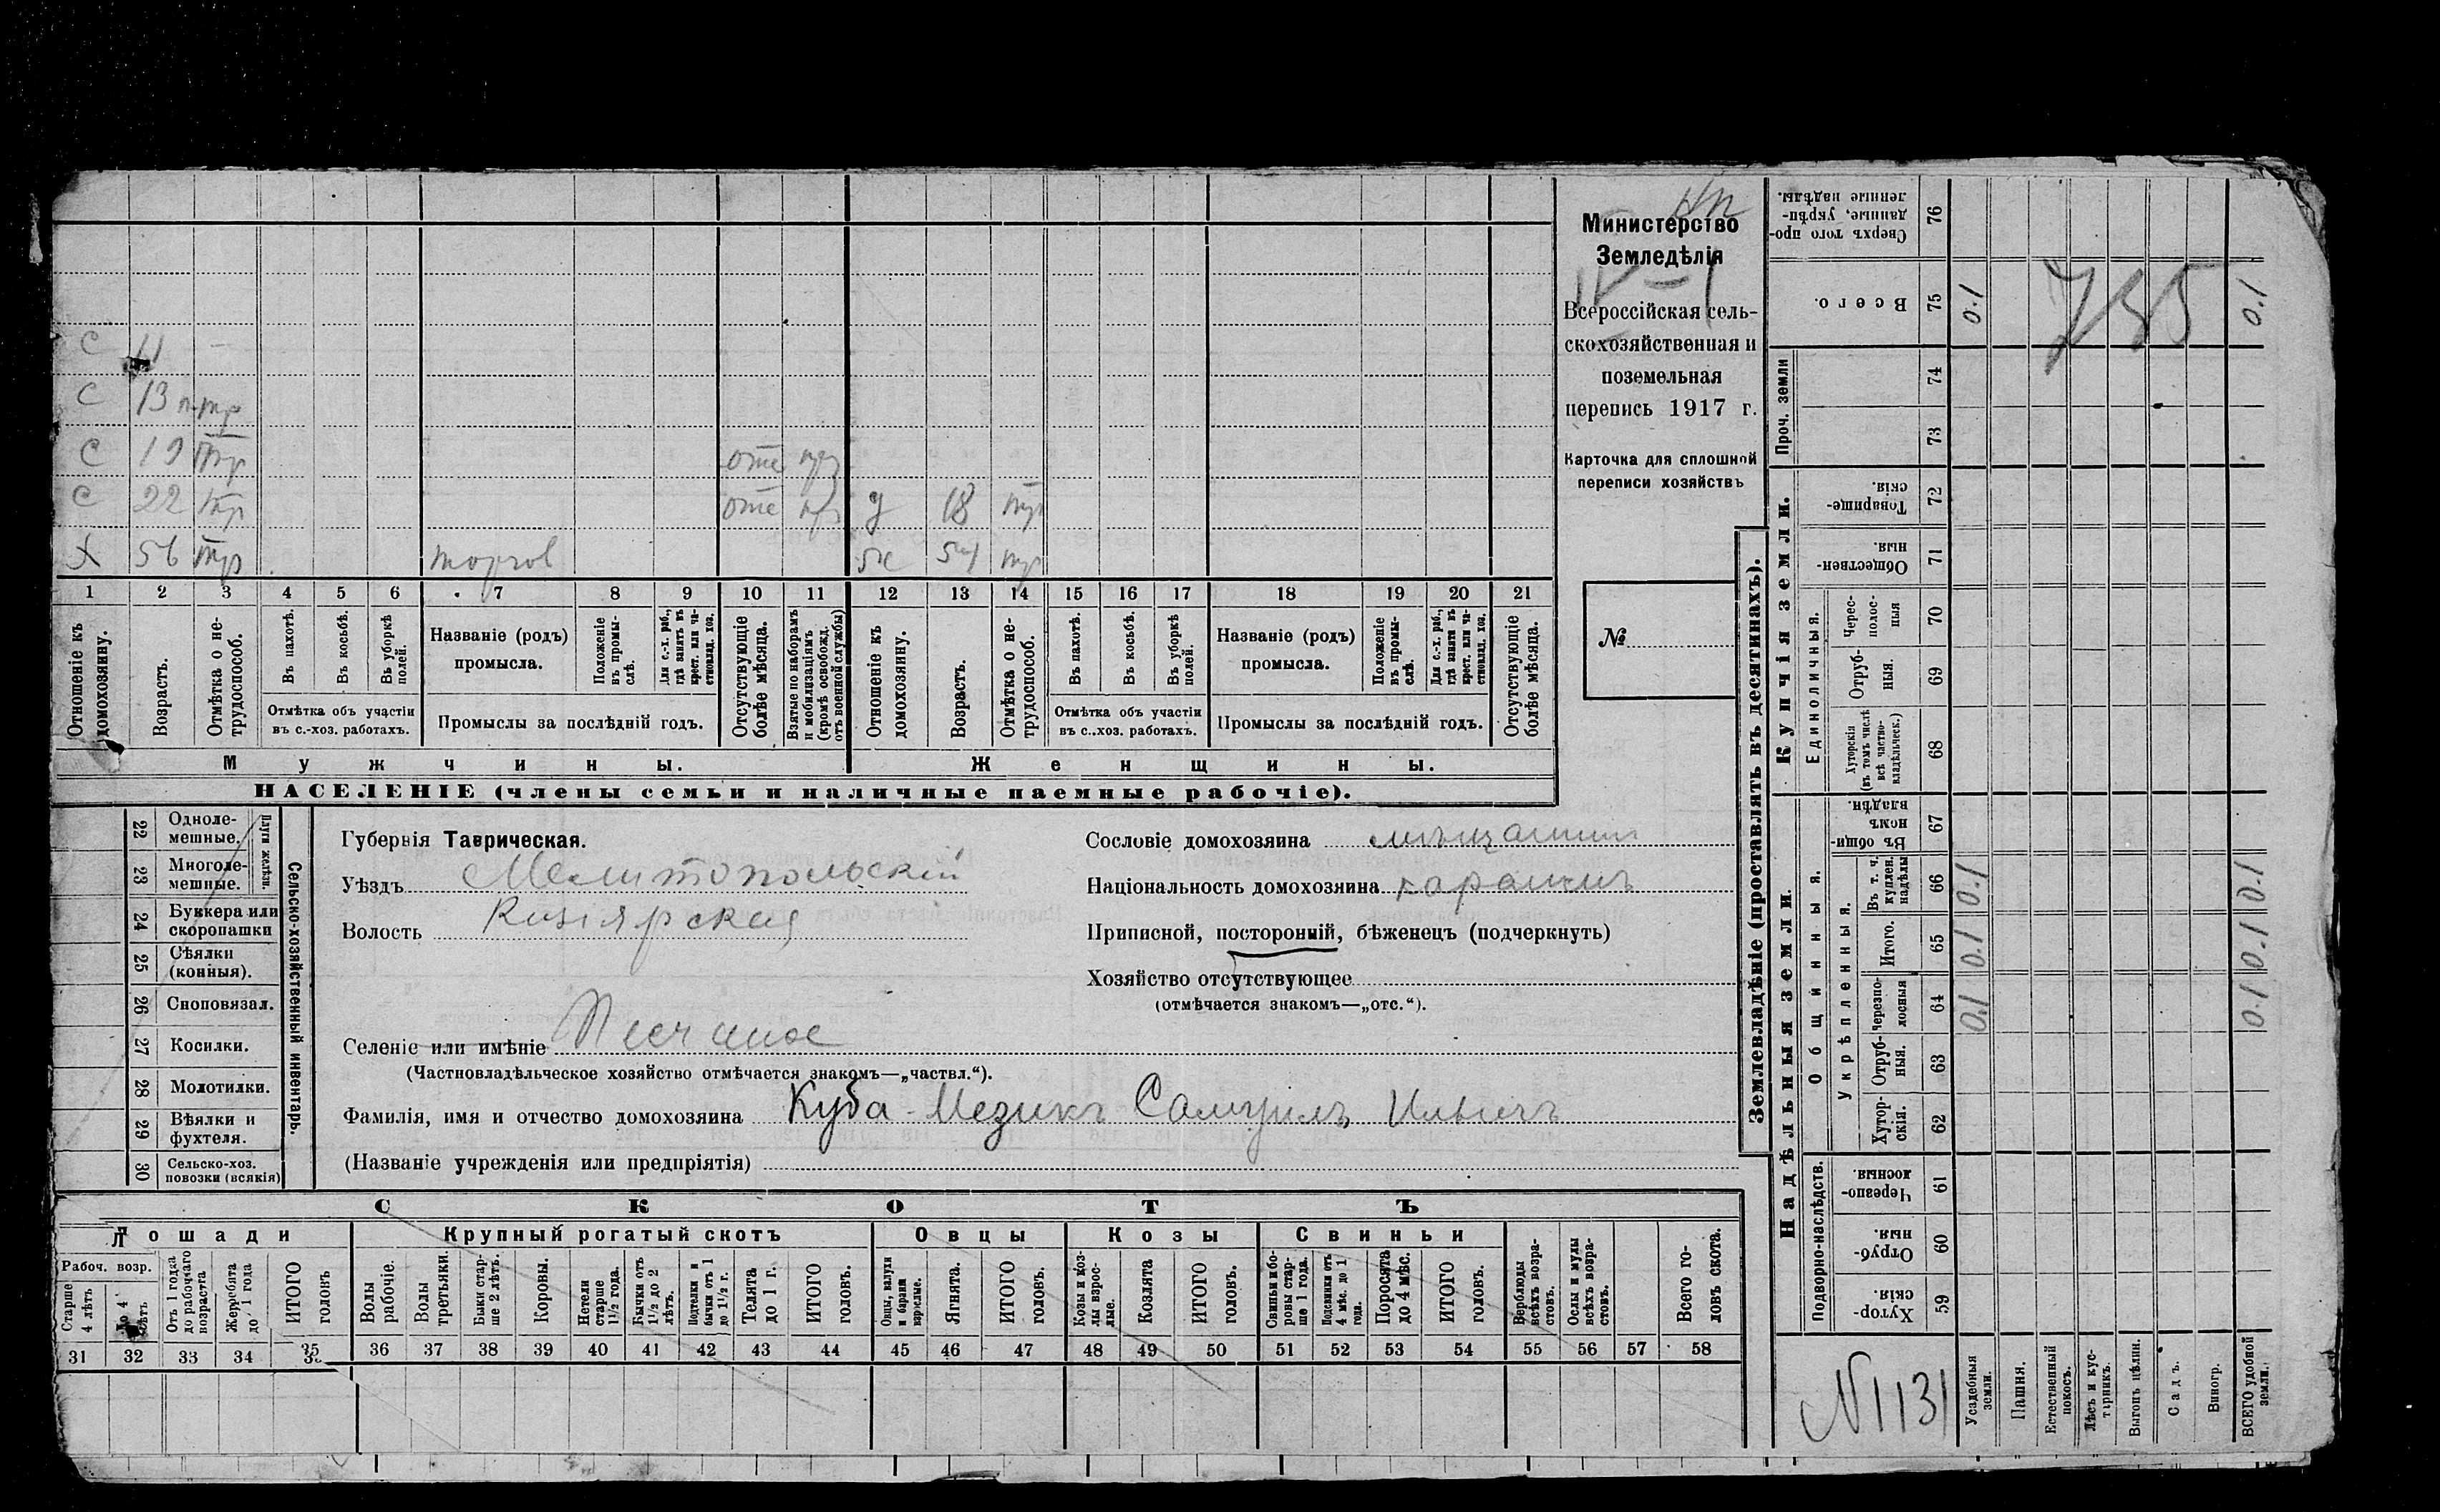 с 11 —
с 13 п.тр
с 19 тр отс пр
с 22 тр отс пр д 18 тр
х 56 тр торгов ж 54 тр
1 2 3 4 5 6 7 8 9 10 11 12 13 14 15 16 17 18 19 20 21
Отношеніе къ домохозяину.
Возрастъ.
Отмѣтка о нетрудоспособ.
Въ пахотѣ.
Въ косьбѣ.
Въ уборкѣ полей.
Отмѣтка объ участіи
въ с.-хоз. работахъ.
Названіе (родъ)
промысла.
Положеніе въ промыслѣ.
Для с.-х. раб., гдѣ занятъ въ крест. или частновлад. хоз.
Промыслы за послѣдній годъ.
Отсутствующіе болѣе мѣсяца.
Взятые по наборамъ и мобилизаціямъ (кромѣ освобожд. отъ военной службы)
Отношеніе къ домохозяину.
Возрастъ.
Отмѣтка о нетрудоспособ.
Въ пахотѣ.
Въ косьбѣ.
Въ уборкѣ полей.
Отмѣтка объ участіи
въ с..хоз. работахъ.
Названіе (родъ)
промысла.
Положеніе въ промыслѣ.
Для с.-х. раб., гдѣ занята въ крест. или частновлад. хоз.
Промыслы за послѣдній годъ.
Отсутствующіе болѣе мѣсяца.
Мужчины.
Женщины.
НАСЕЛЕНІЕ (члены семьи и наличные наемные рабочіе).
Министерство
Земледѣлія
IV-1
Всероссійская сель-
скохозяйственная и
поземельная
перепись 1917 г.
Карточка для сплошной
переписи хозяйствъ
№
22 Одноле-
мешные.
23 Многоле-
мешные.
Плуги желѣзн.
24 Буккера или
скоропашки
25 Сѣялки
(конныя).
26 Сноповязал.
27 Косилки.
28 Молотилки.
29 Вѣялки и
фухтеля.
30 Сельско-хоз.
повозки (всякія)
Сельско-хозяйственный инвентарь.
Губернія Таврическая.
Уѣздъ Мелитопольскій
Волость Кизіярская
Селеніе или имѣніе Песчаное
(Частновладѣльческое хозяйство отмѣчается знакомъ—„частвл.“).
Фамилія, имя и отчество домохозяина Куба-Мезукъ Самуилъ Ильичъ
(Названіе учрежденія или предпріятія)
Сословіе домохозяина мѣщанинъ
Національность домохозяина караимъ
Приписной, посторонній, бѣженецъ (подчеркнуть)
Хозяйство отсутствующее
(отмѣчается знакомъ—„отс.“).
СКОТЪ
Лошади
Крупный рогатый скотъ
Овцы
Козы
Свиньи
Рабоч. возр.
Старше 4 лѣтъ
До 4 лѣтъ
Отъ 1 года до рабочаго возраста
Жеребята до 1 года
ИТОГО головъ
Волы рабочіе.
Волы третьяки.
Быки старше 2 лѣтъ.
Коровы.
Нетели старше 1½ года.
Бычки отъ 1½ до 2 лѣтъ.
Подтелки и бычки отъ 1 до 1½ г.
Телята до 1 г.
ИТОГО головъ.
Овцы, валухи и бараны взрослые.
Ягнята.
ИТОГО головъ.
Козы и козлы взрослые.
Козлята
ИТОГО головъ.
Свиньи и боровы старше 1 года.
Подсвинки отъ 4 мѣс. до 1 года.
Поросята до 4 мѣс.
ИТОГО головъ.
Верблюды всѣхъ возрастовъ.
Ослы и мулы всѣхъ возрастовъ.
Всего головъ скота.
31 32 33 34 35 36 37 38 39 40 41 42 43 44 45 46 47 48 49 50 51 52 53 54 55 56 57 58
Землевладѣніе (проставлять въ десятинахъ).
Сверхъ того проданные, укрѣпленные надѣлы. 76
Всего. 75 0.1 0.1
755
Проч. земли 74
73
Купчія земли.
Товарищескія. 72
Общественныя. 71
Единоличныя.
Чересполосныя 70
Отрубныя. 69
Хуторскія (въ томъ числѣ всѣ частновладѣльческ.) 68
Надѣльныя земли.
Общинныя.
Въ общинномъ владѣн. 67
Укрѣпленныя.
Въ т. ч. куплен. надѣлы 66 0.1 0.1
Итого. 65 0.1 0.1
Черезполосныя 64 0.1 0.1
Отрубныя. 63
Хуторскія. 62
Подворно-наслѣдств.
Черезполосныя. 61
Отрубныя. 60
Хуторскія. 59
N 1131
Усадебныя земли.
Пашня.
Естественный покосъ.
Лѣсъ и кустарникъ.
Выгонъ цѣлин.
Садъ.
Виногр.
ВСЕГО удобной земли.